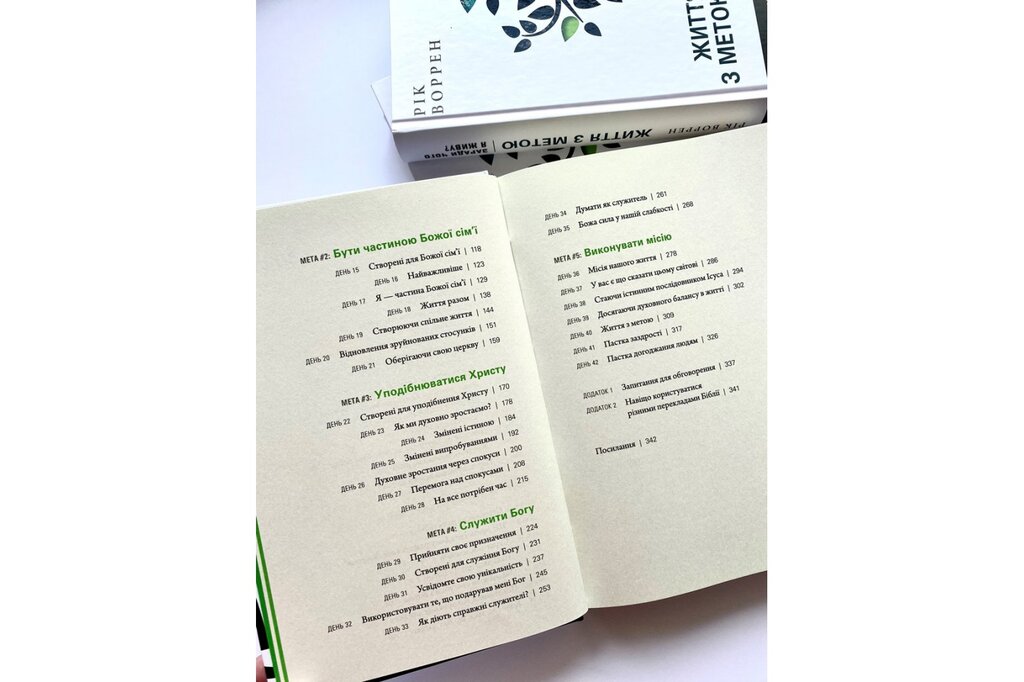 РІК
ВОРРЕН
ЖИТТЯ
З МЕТОЮ
ЗАРАДИ ЧОГО
Я ЖИВУ?
ЖИТТЯ З МЕТОЮ
РІК ВОРРЕН
МЕТА #2: Бути частиною Божої сім'ї
ДЕНЬ 15 Створені для Божої сім'ї | 118
ДЕНЬ 16 Найважливіше | 123
ДЕНЬ 17 Я — частина Божої сім'ї | 129
ДЕНЬ 18 Життя разом | 138
ДЕНЬ 19 Створюючи спільне життя | 144
ДЕНЬ 20 Відновлення зруйнованих стосунків | 151
ДЕНЬ 21 Оберігаючи свою церкву | 159
МЕТА #3: Уподібнюватися Христу
ДЕНЬ 22 Створені для уподібнення Христу | 170
ДЕНЬ 23 Як ми духовно зростаємо? | 178
ДЕНЬ 24 Змінені істиною | 184
ДЕНЬ 25 Змінені випробуваннями | 192
ДЕНЬ 26 Духовне зростання через спокуси | 200
ДЕНЬ 27 Перемога над спокусами | 208
ДЕНЬ 28 На все потрібен час | 215
МЕТА #4: Служити Богу
ДЕНЬ 29 Прийняти своє призначення | 224
ДЕНЬ 30 Створені для служіння Богу | 231
ДЕНЬ 31 Усвідомте свою унікальність | 237
ДЕНЬ 32 Використовувати те, що подарував мені Бог | 245
ДЕНЬ 33 Як діють справжні служителі? | 253
ДЕНЬ 34 Думати як служитель | 261
ДЕНЬ 35 Божа сила у нашій слабкості | 268
МЕТА #5: Виконувати місію
ДЕНЬ 36 Місія нашого життя | 278
ДЕНЬ 37 У вас є що сказати цьому світові | 286
ДЕНЬ 38 Стаючи істинним послідовником Ісуса | 294
ДЕНЬ 39 Досягаючи духовного балансу в житті | 302
ДЕНЬ 40 Життя з метою | 309
ДЕНЬ 41 Пастка заздрості | 317
ДЕНЬ 42 Пастка догоджання людям | 326
ДОДАТОК 1 Запитання для обговорення | 337
ДОДАТОК 2 Навіщо користуватися
різними перекладами Біблії | 341
Посилання | 342